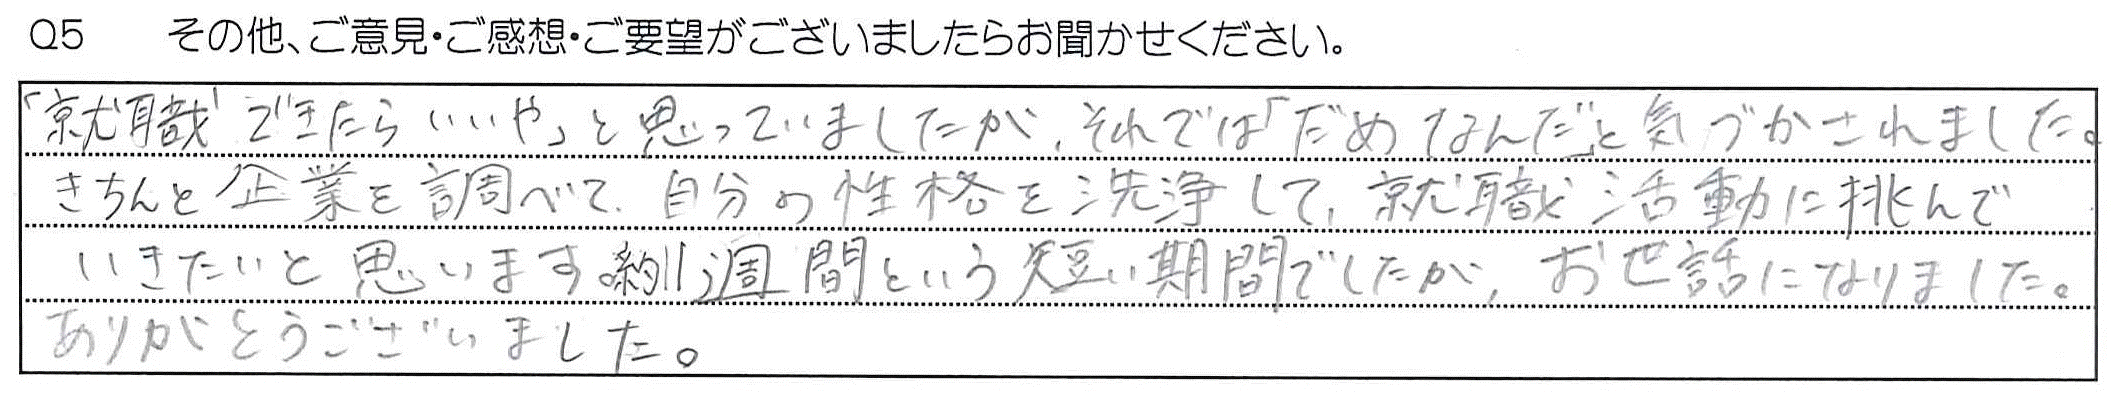 Q5 その他、ご意見・ご感想・ご要望がございましたらお聞かせください。
「就職できたらいいや」と思っていましたが、それでは「だめなんだ」と気づかされました。
きちんと企業を調べて、自分の性格を洗浄して、就職活動に挑んで
いきたいと思います。約1週間という短い期間でしたが、お世話になりました。
ありがとうございました。